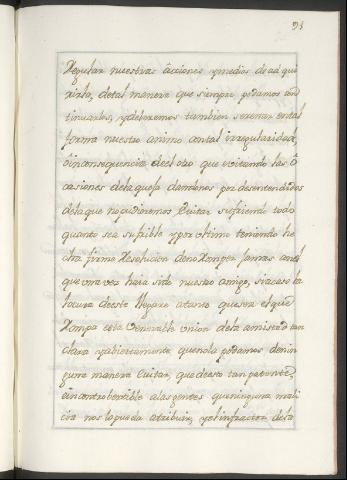 91
Regular nuestras acciones y medios de adqui
rirla, de tal manera que siempre podamos con
tinuarlos, y deveremos tambien serenar en tal
forma nuestro animo con tal irregularidad,
ô inconsequencia del otro que evitando las ô
casiones de la quexa damonos por desentendidos
de la que no pudiremos Evitar sufriendo todo
quanto sea sufrible y por ultimo teniendo he
cha firme Resolucion de no Romper jamas con el
que una vez haia sido nuestro amigo, si acaso la
locura de este llegare a tanto que sea el que
Rompa esta Venerable union de la amistad tan
clara y abiertamente que no la podamos de nin
guna manera Evitar, que de esto tan patente,
è incontrobertible a las gentes que ninguna mali
cia nos la pueda atribuir, y el infractor de la